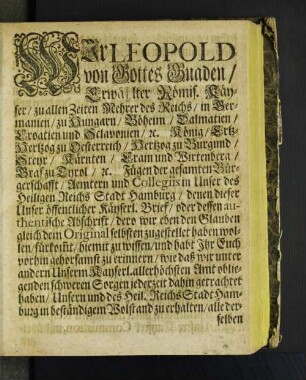 WIr LEOPOLD
von Gottes Gnaden /
Erwählter Römis. Käy-
ser / zu allen Zeiten Mehrer des Reichs / in Ger-
manien / zu Hungarn / Böheim / Dalmatien /
Croatien und Sclavonien / ꝛc. König / Ertz-
Hertzog zu Oesterreich / Hertzog zu Burgund /
Steyr / Kärnten / Crain und Wirtenberg /
Graf zu Tyrol / ꝛc. Fügen der gesamten Bür-
gerschafft / Aemtern und Collegiis in Unser des
Heiligen Reichs Stadt Hamburg / denen dieser
Unser öffentlicher Käyserl. Brief / oder dessen au-
thentische Abschrifft / dero wir eben den Glauben
gleich dem Original selbsten zugestellet haben wol-
len / fürkomt / hiemit zu wissen / und habt Ihr Euch
vorhin gehorsamst zu erinnern / wie daß wir unter
andern Unserm Kayserl. allerhöchsten Amt oblie-
genden schweren Sorgen jederzeit dahin getrachtet
haben / Unsern und des Heil. Reichs Stadt Ham-
burg in beständigem Wolstand zu erhalten / alle der-
selben